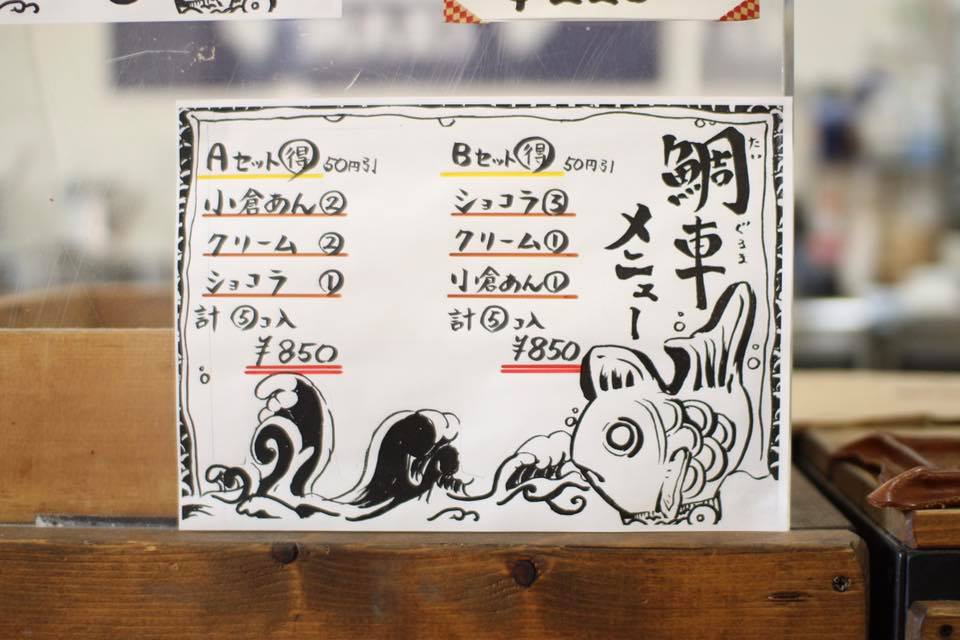 鯛車
たい
ぐるま
メニュー
Aセット 得 50円引
小倉あん②
クリーム ②
ショコラ ①
計 ⑤コ入
¥850
Bセット 得 50円引
ショコラ③
クリーム①
小倉あん①
計 ⑤コ入
¥850